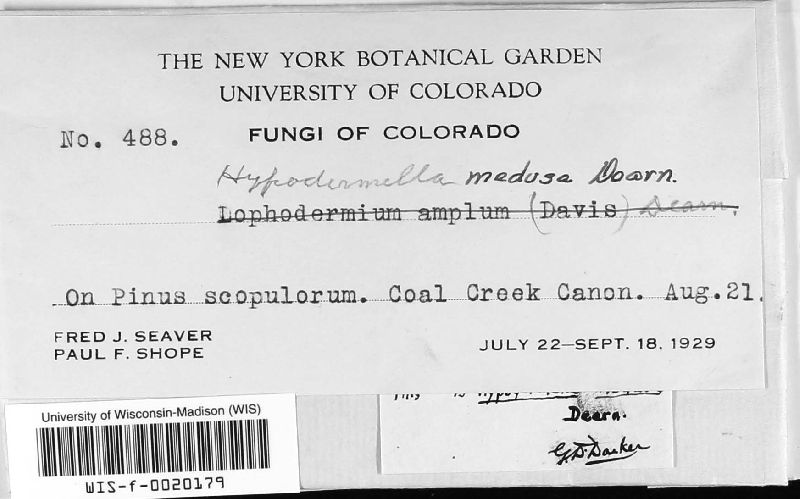 THE NEW YORK BOTANICAL GARDEN
UNIVERSITY OF COLORADO
No. 488. FUNGI OF COLORADO
Hypodermella medusa Dearn.
Lophodermium amplum (Davis) Dearn.
On Pinus scopulorum. Coal Creek Canon. Aug.21.
FRED J. SEAVER
PAUL F. SHOPE
JULY 22—SEPT. 18, 1929
University of Wisconsin-Madison (WIS)
WIS-f-0020179
Dearn.
G.D. Darker